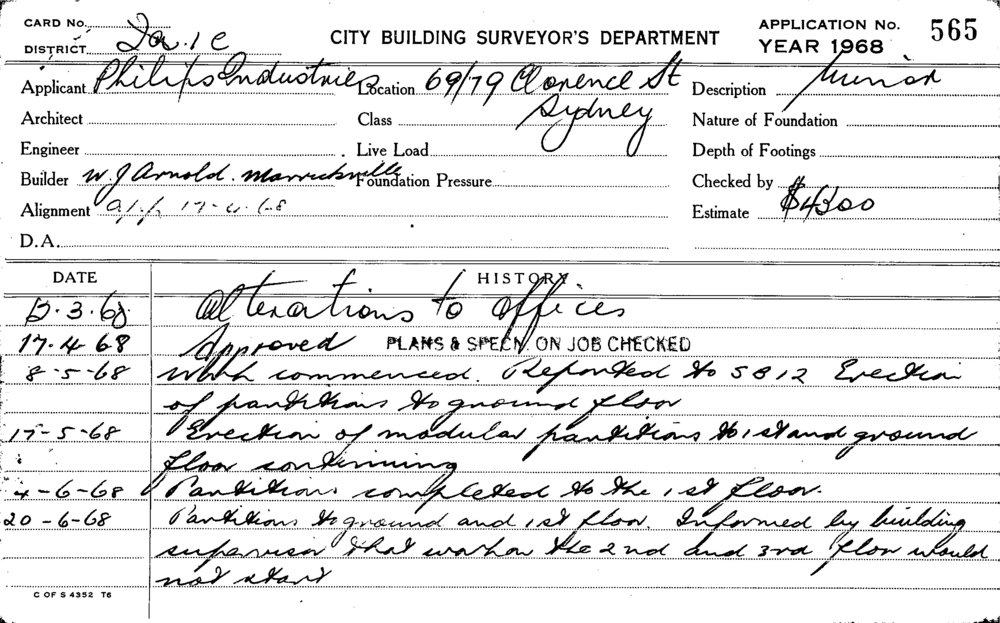 CARD No.
DISTRICT
CITY BUILDING SURVEYOR'S DEPARTMENT
APPLICATION No. 565
YEAR 1968
Applicant Philips Industries Location 69/79 Clarence St Description Minor
Architect Class Sydney Nature of Foundation
Engineer Live Load Depth of Footings
Builder W. J Arnold. Marrickville Foundation Pressure Checked by
Alignment 17-4-68 Estimate $4300
D.A.
DATE HISTORY
3.68 Alterations to offices
17.4.68 Approved PLANS & SPECN. ON JOB CHECKED
8-5-68 Work commenced. Reported to S812 Erection
of partitions to ground floor
17-5-68 Erection of modular partitions to 1st and ground
floor continuing
4-6-68 Partitions completed to the 1st floor.
20-6-68 Partitions to ground and 1st floor. Informed by building
supervisor that work on the 2nd and 3rd floor would
not start
C OF S 4352 T6